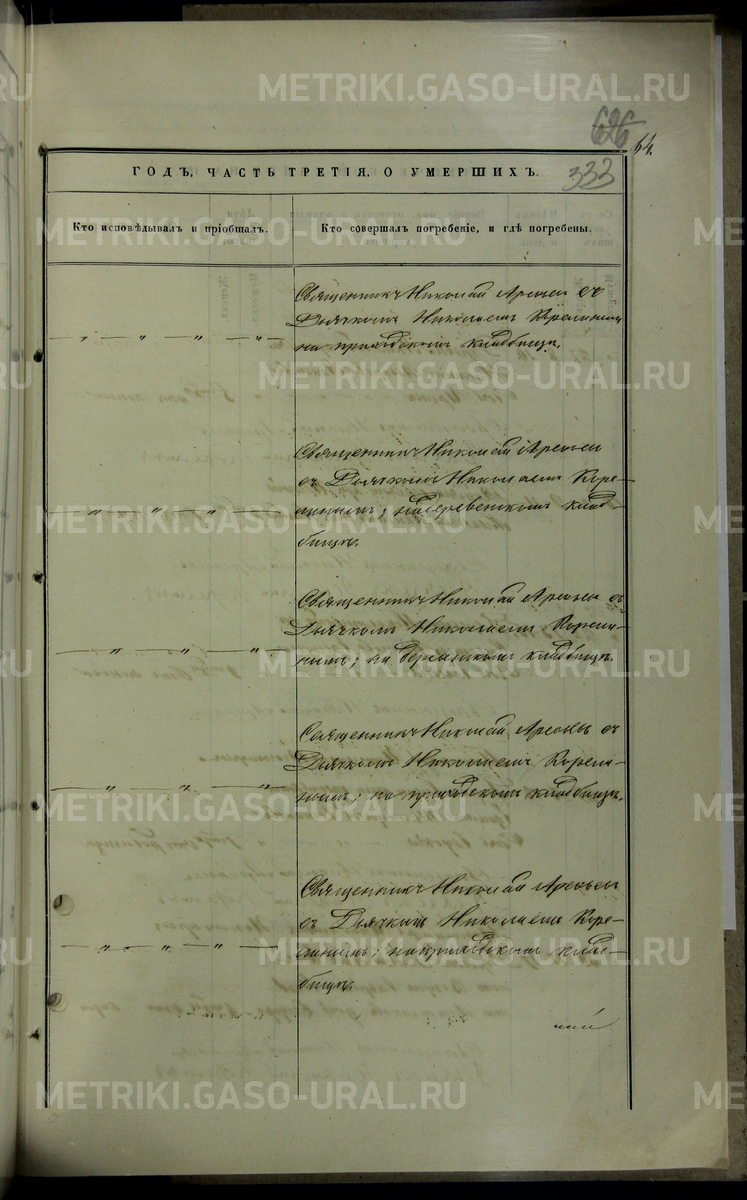 METRIKI.GASO-URAL.RU
626
64.
333
ГОДЪ, ЧАСТЬ ТРЕТІЯ, О УМЕРШИХЪ.
Кто исповѣдывалъ и пріобщалъ.
Кто совершалъ погребеніе, и гдѣ погребены.
Священникъ Николай съ
Дьячкомъ Николаемъ
— „ — „ — „ — „ —
на приходскомъ кладбищѣ.
METRIKI.GASO-URAL.RU
Священникъ Николай
съ Дьячкомъ Николаемъ Коре-
— „ — „ — „ — „ —
линымъ; на деревенскомъ клад-
METRIKI.GASO-URAL.RU
бищѣ.
Священникъ Николай съ
Дьячкомъ Николаемъ Корели-
— „ — „ — „ —
нымъ; на кладбищѣ.
METRIKI.GASO-URAL.RU
Священникъ Николай съ
Дьячкомъ Николаемъ Корели-
— „ — „ — „ — „
нымъ; на приходскомъ кладбищѣ.
METRIKI.GASO-URAL.RU
Священникъ Николай
съ Дьячкомъ Николаемъ Коре-
— „ — „ — „ — „ —
линымъ; на приходскомъ клад-
METRIKI.GASO-URAL.RU
бищѣ.
METRIKI.GASO-URAL.RU